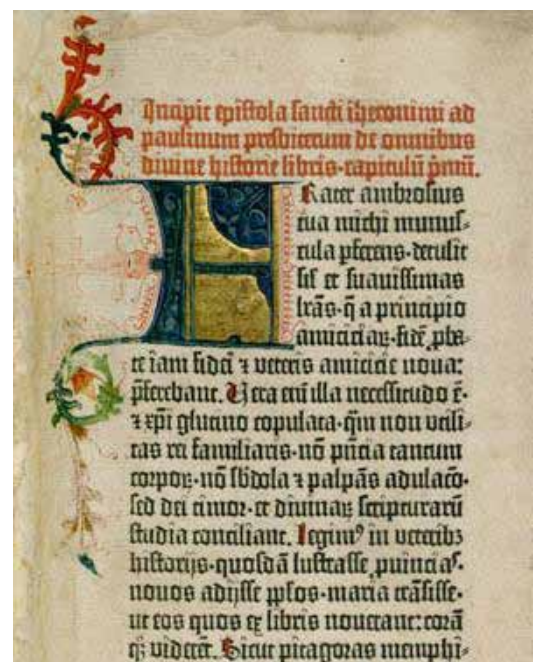 Incipit epistola sancti iheronimi ad
paulinum presbiterum de omnibus
diuine historie libris·capitulū p̄mū.
FRater ambrosius
tua michi munus-
cula ꝑferens·detulit
sił et suauissimas
lr̄as·q̄ a principio
amiciciaꝝ·fidē ꝓba-
te iam fidei ⁊ veteris amicicie noua:
ꝓferebant. Vera em̄ illa necessitudo ē·
⁊ xp̄i glutino copulata·q̄m non vtili-
tas rei familiaris·nō p̄ncia tantum
corpoꝝ·nō sb̄dola ⁊ palpās adulacō·
sed dei timor·et diuinaꝝ scripturarū
studia conciliant. Legimꝰ in veteribꝫ
historijs·quosdā lustrasse ꝓuincias·
nouos adijsse pp̄los·maria trāsisse·
ut eos quos ex libris nouerant: corā
qꝫ viderēt. Sicut pitagoras memphi-